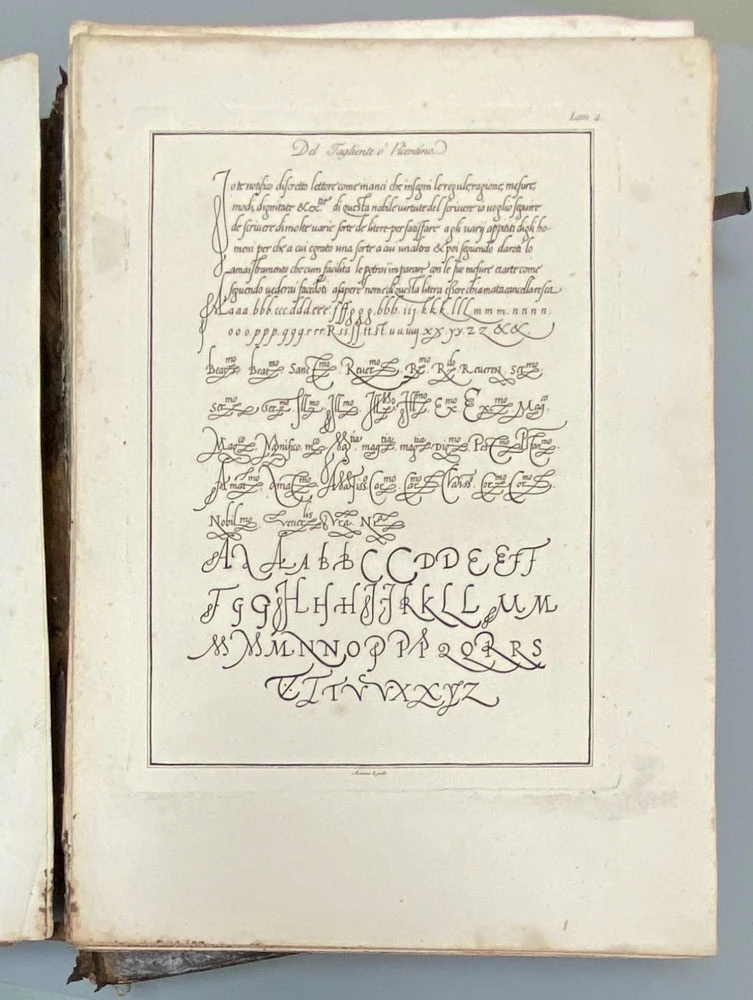 Lam. 4.
Del Tagliente ó Vicentino.
Io te notifico discretto lettore come manci che insegni le regule ragione, mesure,
modi, dignitate &cᵗᵉ di questa nobile virtute del scrivere io voglio seguire
de scrivere di molte varie sorte de litere per satisfare a gli varij appititi degli ho-
meni per che a cui e grato una sorte a cui un altra & poi seguendo daroti lo
amaistramento che cum facilita le potrai imparare con le sue mesure et arte come
seguendo vederai facedoti asapere nome di questa litera essere chiamata cancellaresca
aaa.bbb.ccc.ddd.eee.fff.ggg.hhh.iij.kkk.lll.mmm.nnnn.
ooo.ppp.qqq.rrr.Rss.ſſ.tt.st.uu.uuy.xx.yy.zz.&&.
Beatᵐᵒ Beatᵐᵒ Sanctᵐᵒ Reverᵐᵒ Rᵐᵒ Rᵈᵒ Reveren. Serᵐᵒ
Serᵐᵒ Serᵐᵒ Illᵐᵒ Illᵐᵒ Illᵐᵒ Illᵐᵒ Exᵐᵒ Exᵐᵒ Magᶜᵒ
Magᶜᵒ Magnifico. mᶜᵒ magᵗⁱᵃ magᵗⁱᵃ Digᵐᵒ
Carᵐᵒ Carᵐᵒ Cariss. Corᵐᵒ Corᵐᵒ
Nobilᵐᵒ venerˡⁱˢ Vrā. Nrā
A A A A b B C C D D E E F F
F G G H H H I J K K L L M M
M M M N N O P P P Q Q R R S
T T T V V X X Y Z